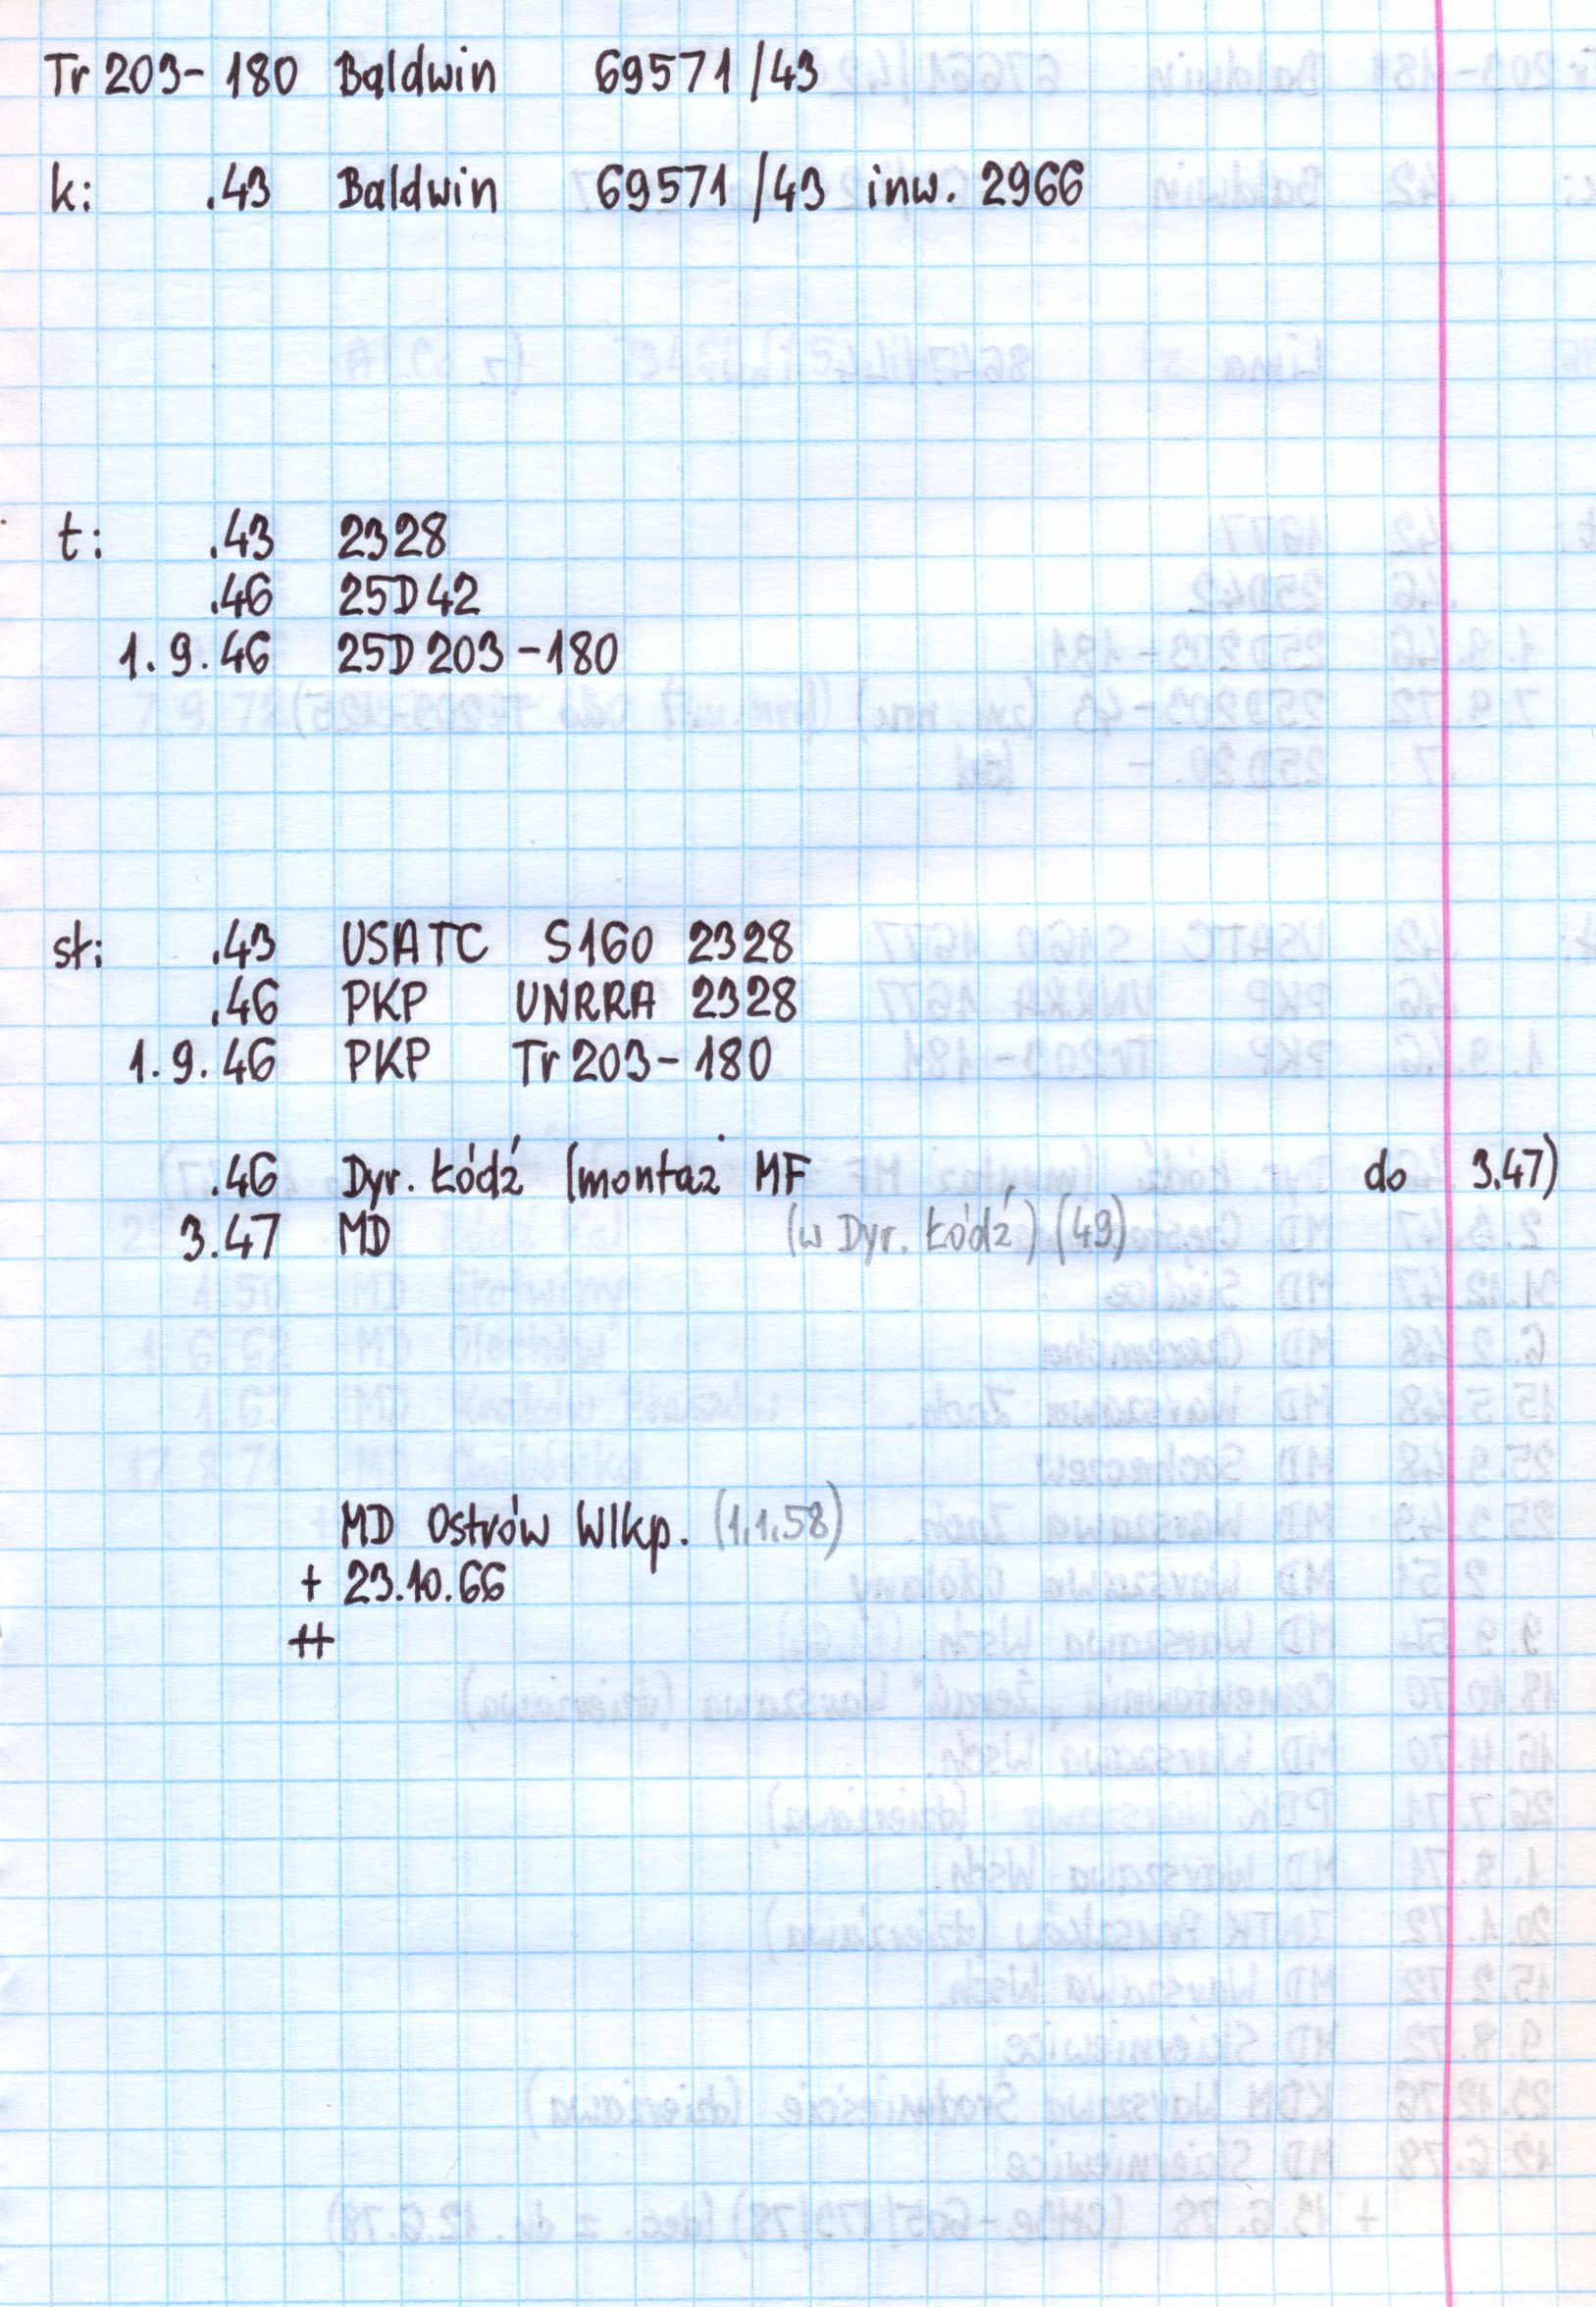 Tr 203-180 Baldwin 69571/43
k: .43 Baldwin 69571/43 inw. 2966
t: .43 2328
.46 25D42
1.9.46 25D203-180
st: .43 USATC S160 2328
.46 PKP UNRRA 2328
1.9.46 PKP Tr203-180
.46 Dyr. Łódź (montaż MF do 3.47)
3.47 MD (w Dyr. Łódź) (49)
MD Ostrów Wlkp. (1.1.58)
+ 23.10.66
++